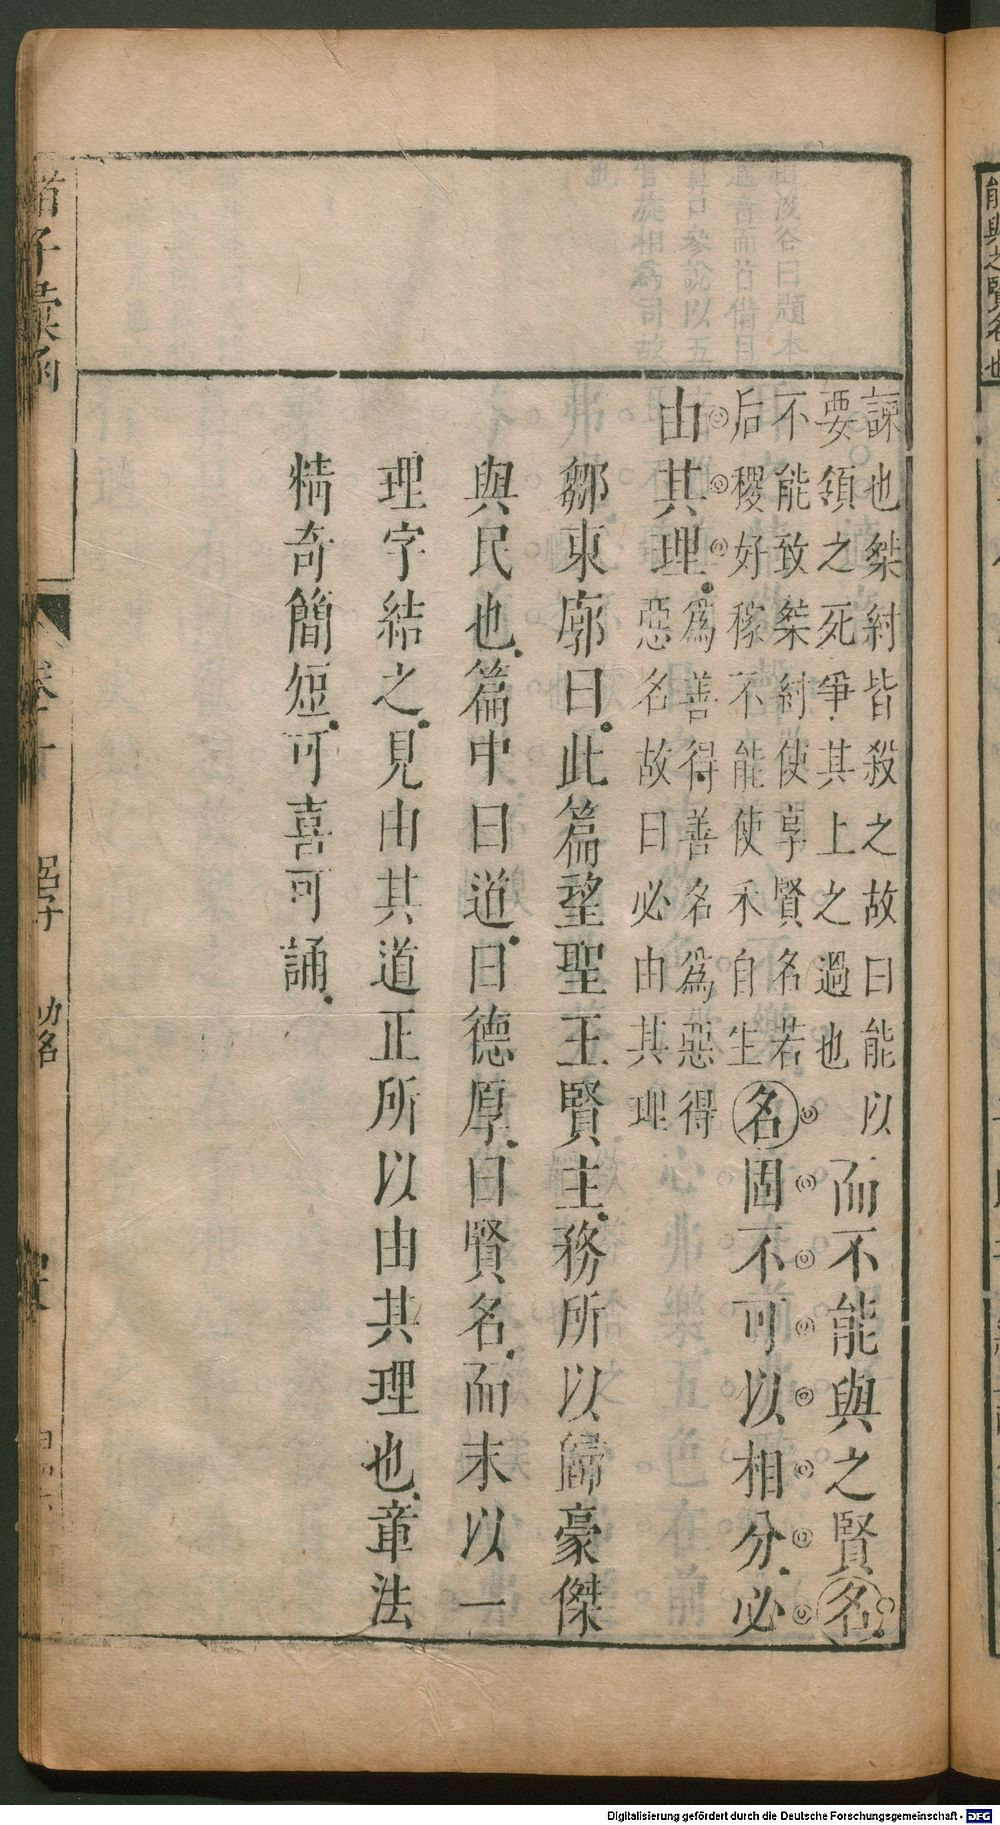 能與之賢名也
諫也桀紂皆殺之故曰能以
要領之死爭其上之過也
而不能與之賢名
不能致桀紂使享賢名若
后稷好稼不能使禾自生
名固不可以相分必
由其理
爲善得善名爲惡得
惡名故曰必由其理
鄒東廓曰此篇望聖王賢主務所以歸豪傑
與民也篇中曰道曰德厚曰賢名而末以一
理字結之見由其道正所以由其理也章法
精奇簡短可喜可誦
諸子彙函
卷十
呂子 功名
Digitalisierung gefördert durch die Deutsche Forschungsgemeinschaft - DFG